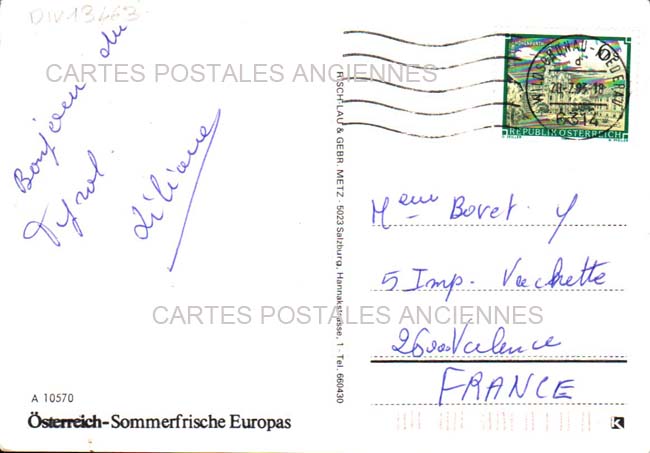 DIV-13463
CARTES POSTALES ANCIENNES
Bonjour du
Tyrol.
Liliane
RISCH-LAU & GEBR. METZ - 5023 Salzburg, Hannakstrasse, 1 - Tel. 660430
6314
REPUBLIK ÖSTERREICH
Meme Bovet. Y
5 Imp. Vachette
26000 Valence
FRANCE
CARTES POSTALES ANCIENNES
A 10570
Österreich-Sommerfrische Europas
K